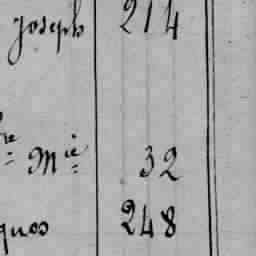 Joseph 214
re Mie 32
ques 248